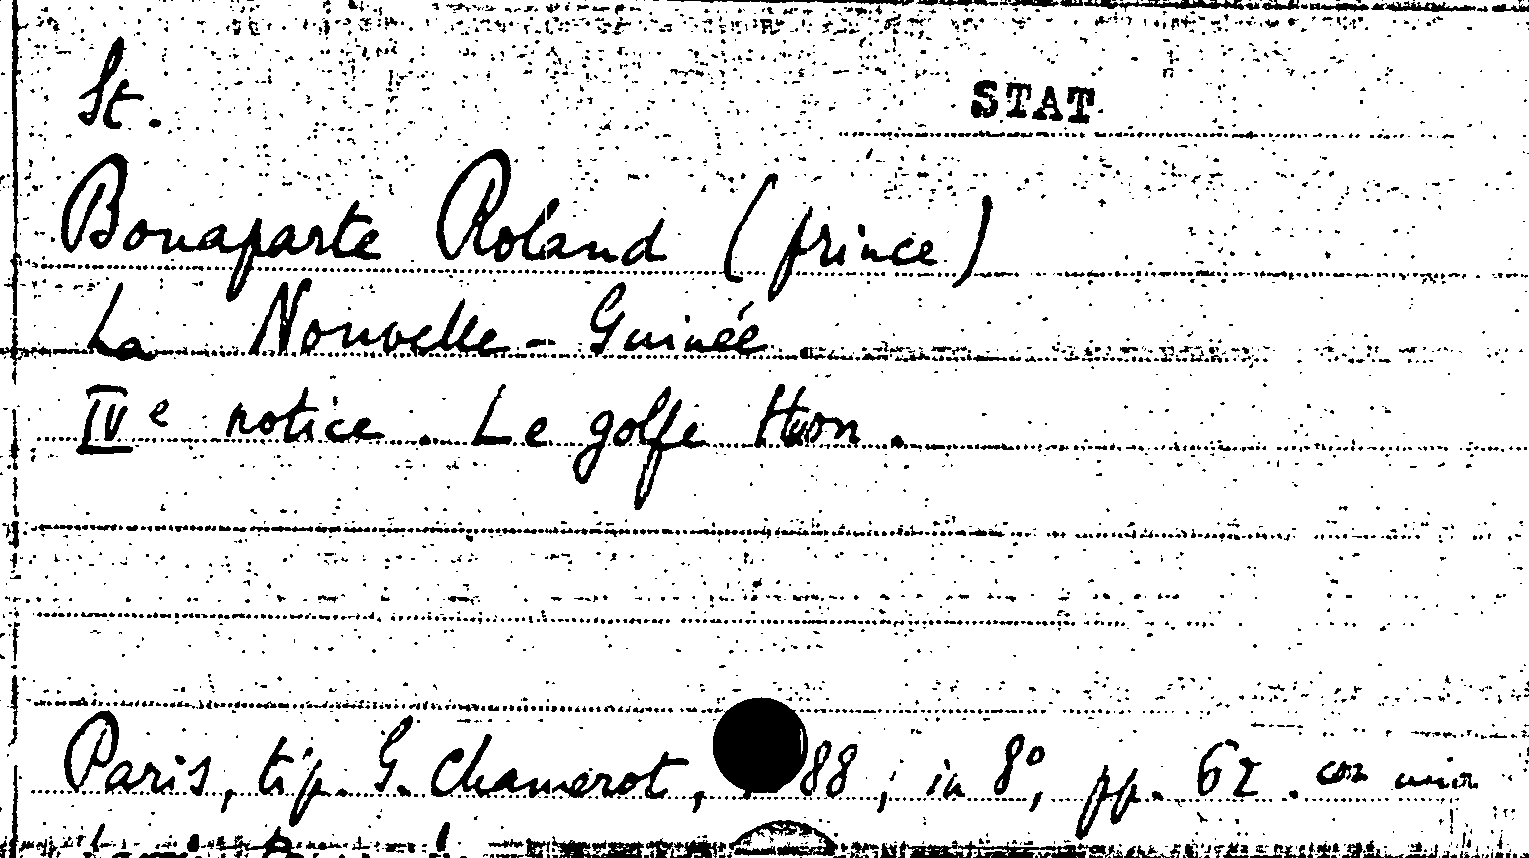 St.
STAT
Bonaparte Roland (prince)
La Nouvelle-Guinée.
IVe notice. Le golfe Huon.
Paris, tip. G. Chamerot, 88, in 8°, pp. 62. con